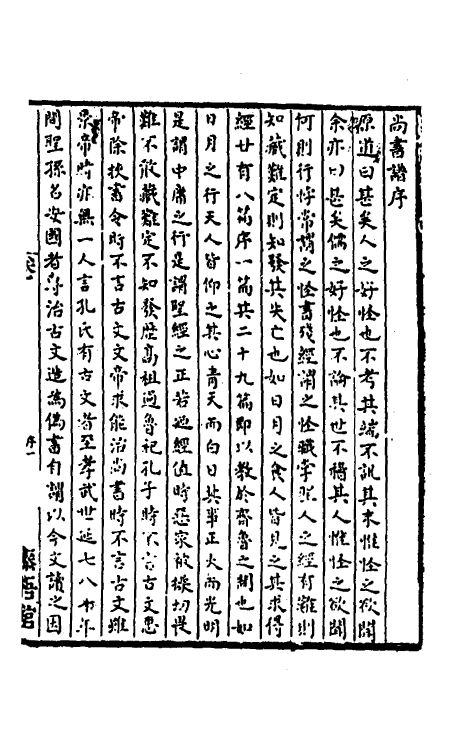 尚書譜序
原道曰甚矣人之好怪也不考其端不訊其末惟怪之欲聞
余亦曰甚矣儒之好怪也不論其世不稽其人惟怪之欲聞
何則行悖常謂之怪書殘經謂之怪職掌聖人之經有難則
知藏難定則知發其失亡也如日月之食人皆見之其求得
經廿有八篇序一篇共二十九篇即以教於齊魯之間也如
日月之行天人皆仰之其心青天而白日其事正大而光明
是謂中庸之行是謂聖經之正若廼經值時惡家被操切畏
難不敢藏難定不知發歷高祖過魯祀孔子時不言古文惠
帝除挾書令時不言古文文帝求能治尚書時不言古文雖
景帝時亦無一人言孔氏有古文者至孝武世延七八十年
間聖孫名安國者專治古文造為偽書自謂以今文讀之因
序一